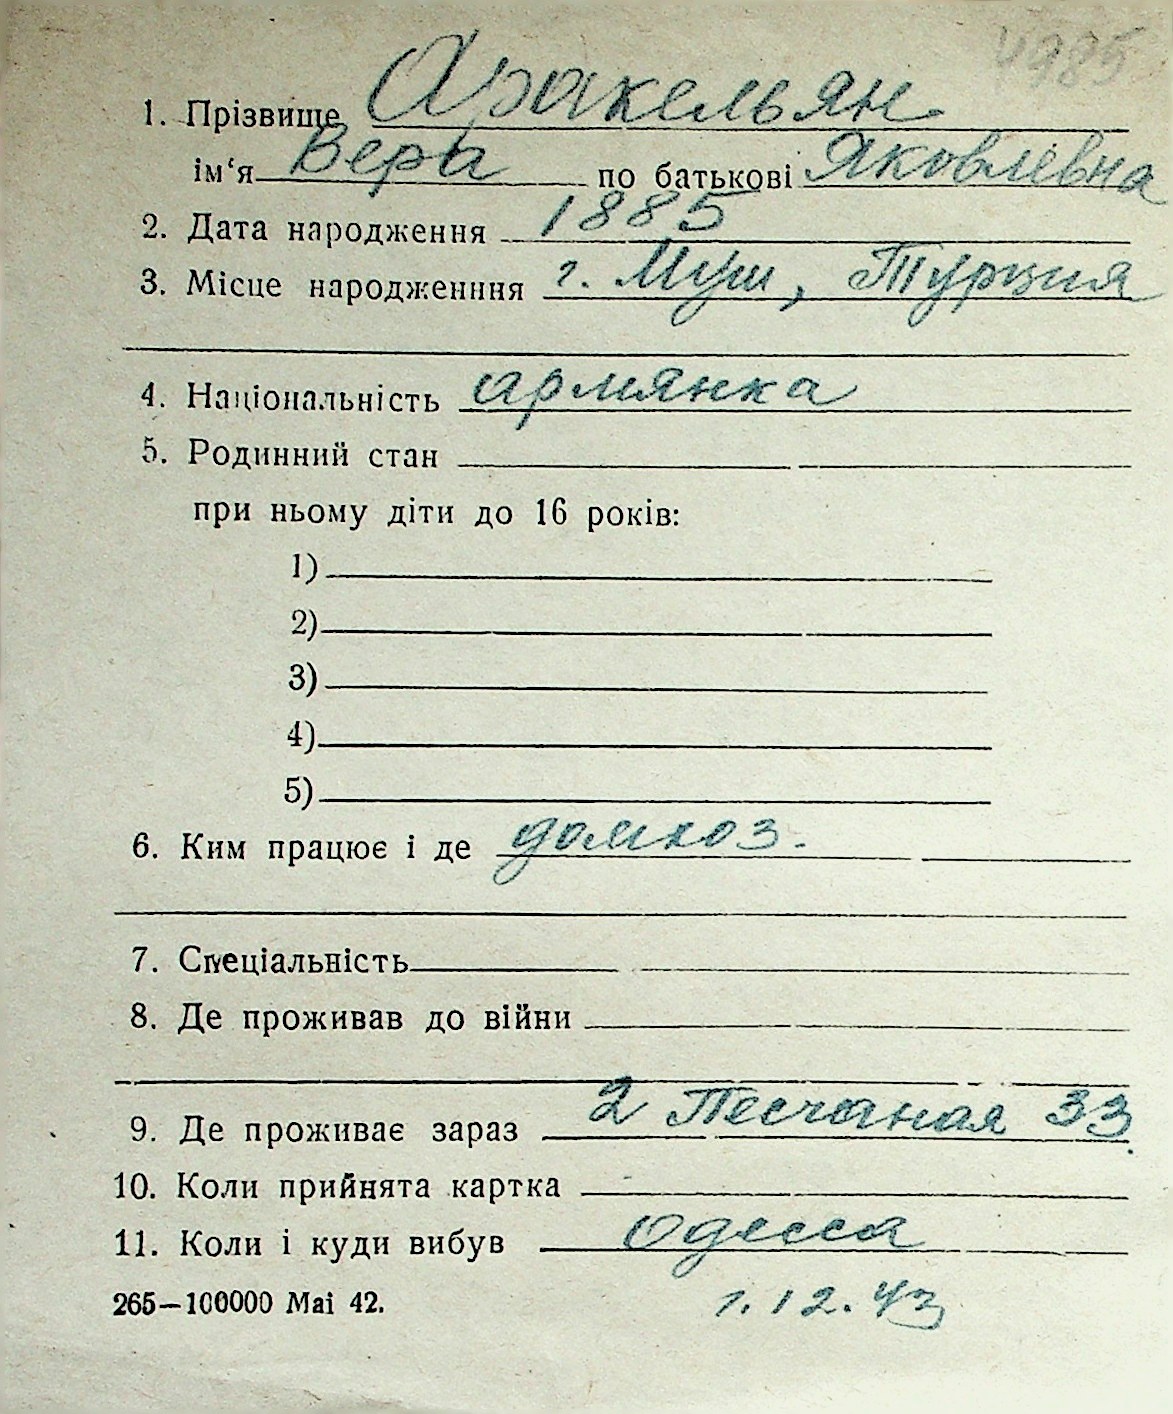 4985
1. Прізвище Аракельян
ім‘я Вера по батькові Яковлевна
2. Дата народження 1885
3. Місце народженння г. Муш, Турция
4. Національність армянка
5. Родинний стан
при ньому діти до 16 років:
1)
2)
3)
4)
5)
6. Ким працює і де домхоз.
7. Спеціальність
8. Де проживав до війни
9. Де проживає зараз 2 Песчаная 33
10. Коли прийнята картка
11. Коли і куди вибув Одесса
265—100000 Маі 42. 1.12.43